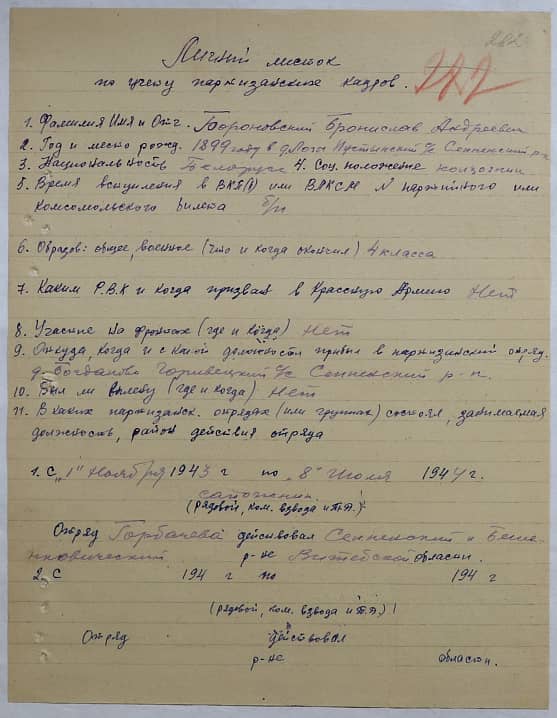 282
Личный листок
по учету партизанских кадров.
272
1. Фамилия Имя и Отч. Вороновский Бронислав Андреевич
2. Год и место рожд. 1899 году в д. Пустынский с/с Сенненский р-н
3. Национальность Белорус 4. Соц. положение колхозник
5. Время вступления в ВКП(б) или ВЛКСМ № партийного или
комсомольского билета б/п
6. Образов: общее, военное (что и когда окончил) 4 класса
7. Каким Р.В.К и когда призван в Красную Армию Нет
8. Участие на фронтах (где и когда) Нет
9. Откуда, когда и с какой должности прибыл в партизанский отряд.
д. Богданово с/с Сенненский р-н
10. Был ли в плену (где и когда) Нет
11. В каких партизанск. отрядах (или группах) состоял, занимаемая
должность, район действия отряда
1. С "1" Ноября 1943 г по "8" Июля 1944 г.
сапожник
(рядовой, ком. взвода и т.д.)
Отряд Горбачева действовал Сенненский и Беше-
нковический р-не Витебской области.
2. С 194 г по 194 г
(рядовой, ком. взвода и т.д.)
Отряд действовал
р-не области.